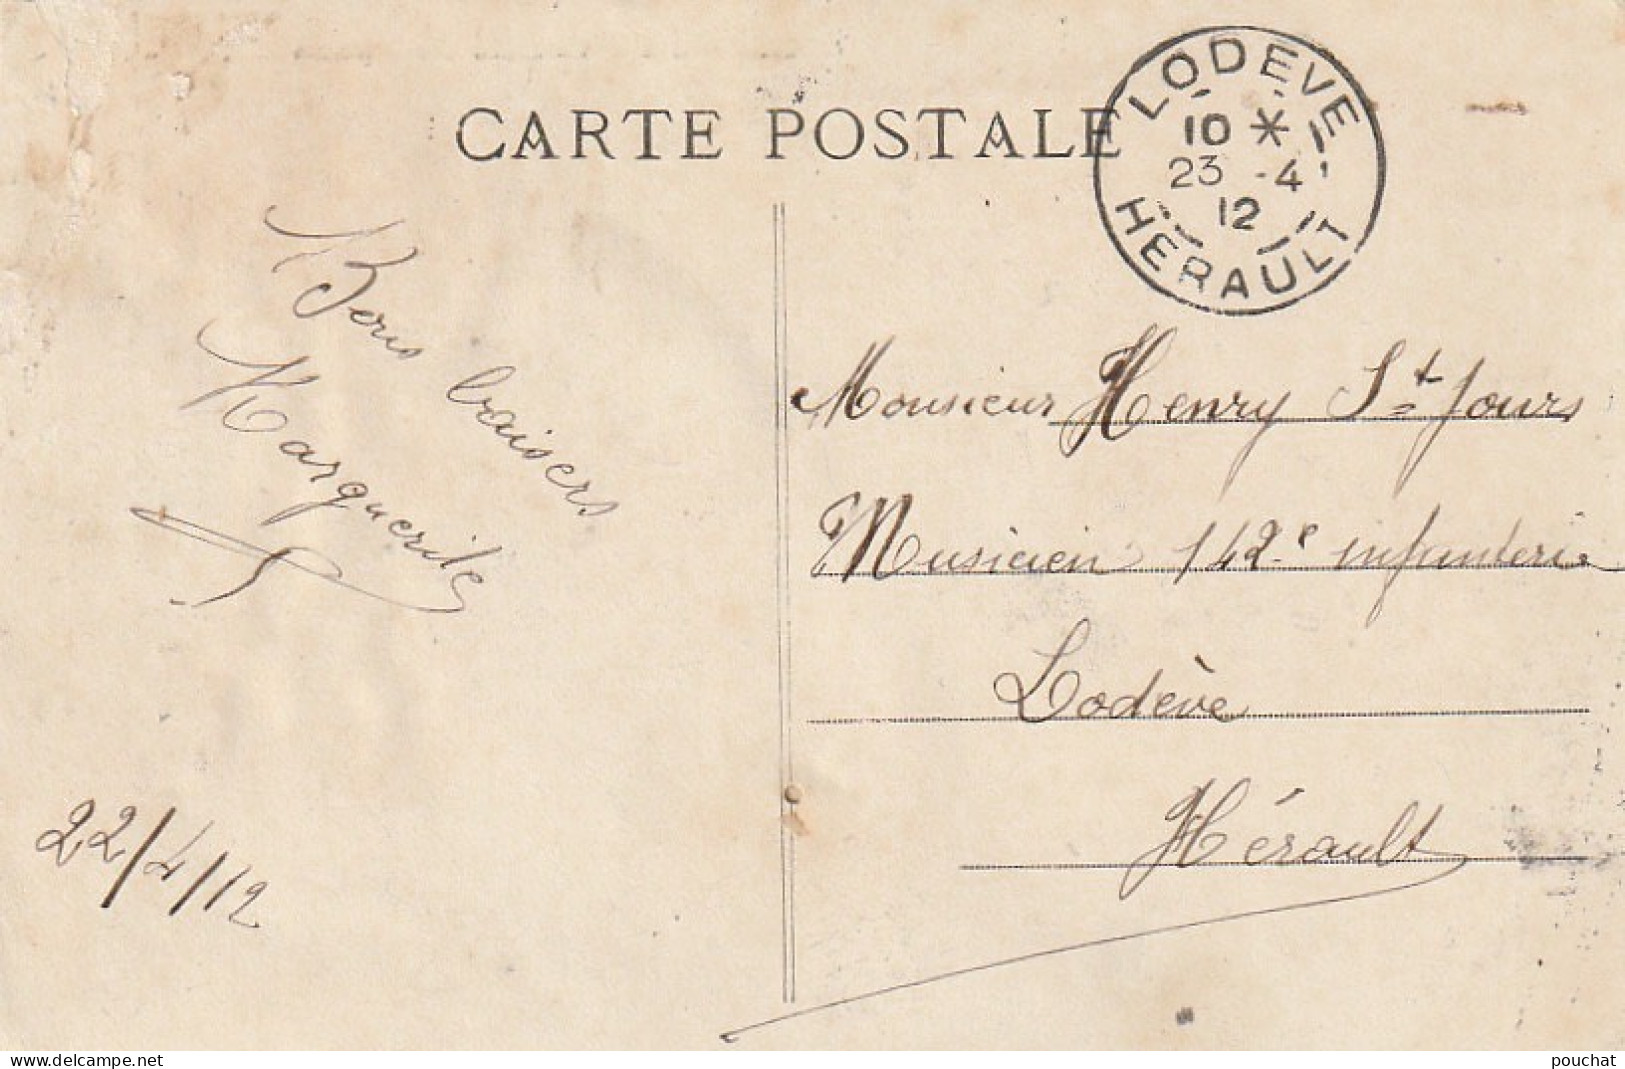 CARTE POSTALE
LODEVE
10 *
23 -4
12
HERAULT
Bons baisers
Marguerite
22/4/12
Monsieur Henry St Jours
Musicien 142e infanterie
Lodève
Hérault
www.delcampe.net
pouchat